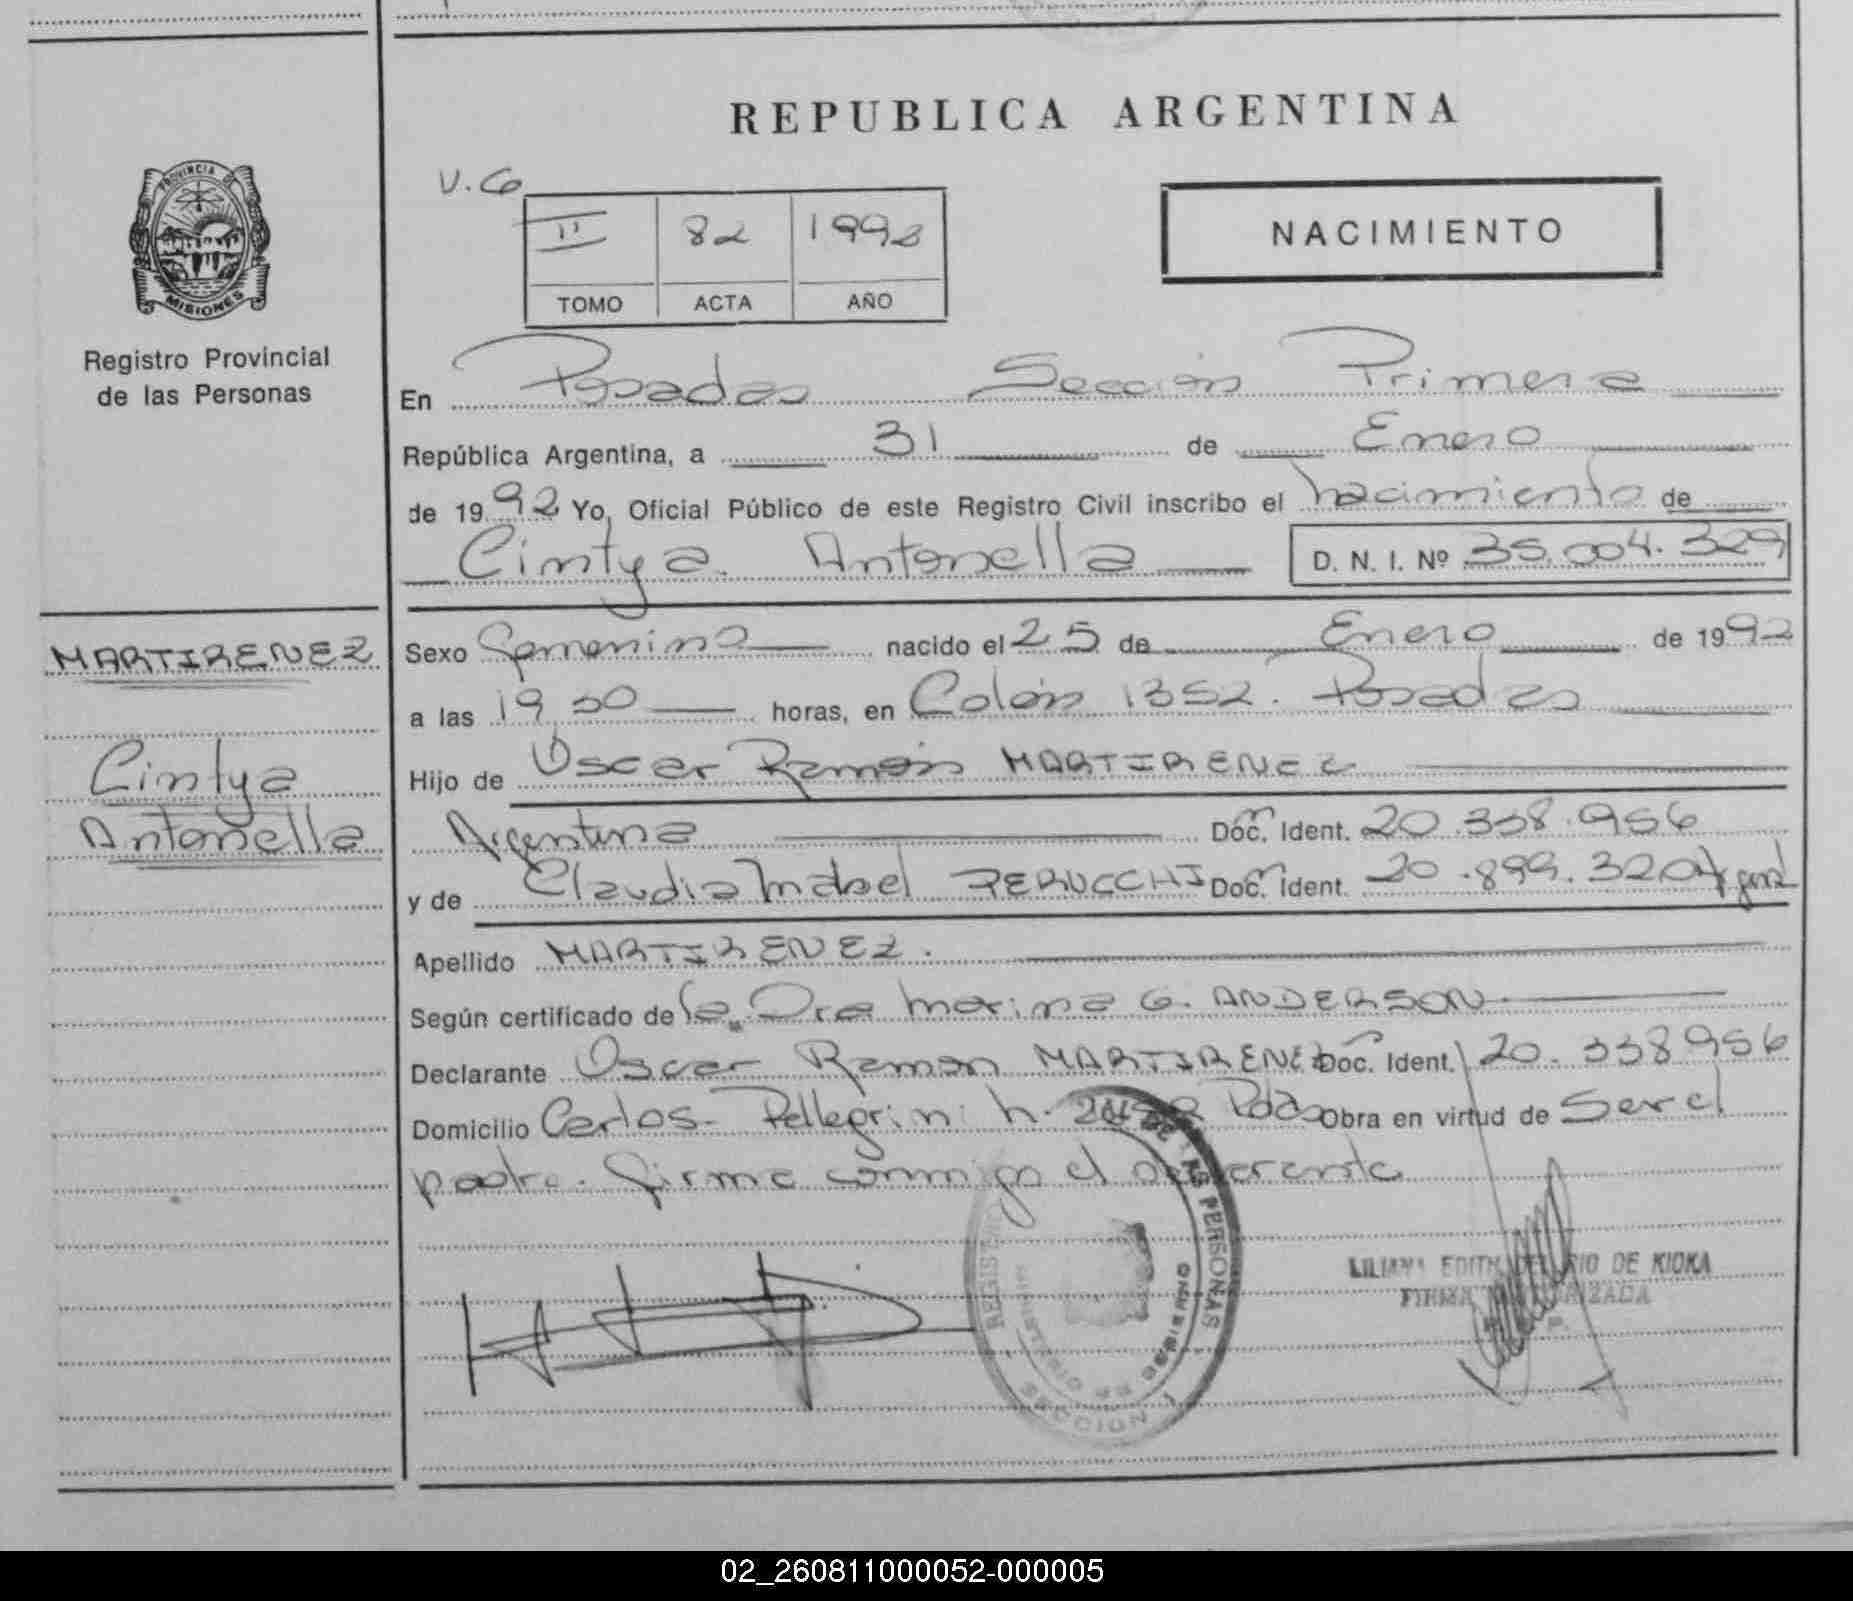 REPUBLICA ARGENTINA
V.C.
II 82 1992
TOMO ACTA AÑO
NACIMIENTO
PROVINCIA DE MISIONES
Registro Provincial
de las Personas
En Posadas Sección Primera
República Argentina, a 31 de Enero
de 1992 Yo, Oficial Público de este Registro Civil inscribo el nacimiento de
Cintya Antonella D. N. I. Nº 35.004.329
MARTIRENEZ
Cintya
Antonella
Sexo femenino nacido el 25 de Enero de 1992
a las 19,30 horas, en Colón 1352. Posadas
Hijo de Oscar Ramón MARTIRENEZ
Argentina Doc. Ident. 20.338.956
y de Claudia Mabel PERUCCHI Doc. Ident. 20.899.320
Apellido MARTIRENEZ.
Según certificado de la Dra Marina G. ANDERSON
Declarante Oscar Ramon MARTIRENEZ Doc. Ident. 20.338956
Domicilio Carlos Pellegrini Pdas Obra en virtud de Ser el
padre. firma conmigo el
REGISTRO DE LAS PERSONAS
SECCION 1
LILIANA EDITH DEL RIO DE KIOKA
FIRMA AUTORIZADA
02_260811000052-000005